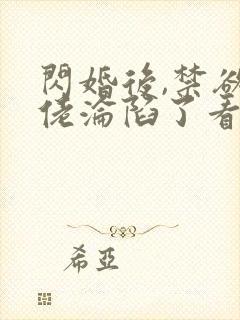 閃婚後,禁欲
佬淪陷了看
希亞